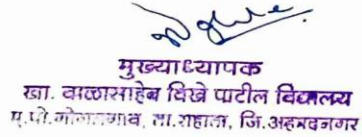 मुख्याध्यापक
खा. बाळासाहेब विखे पाटील विद्यालय
मु.पो.गोगलगाव, ता.राहाता, जि.अहमदनगर